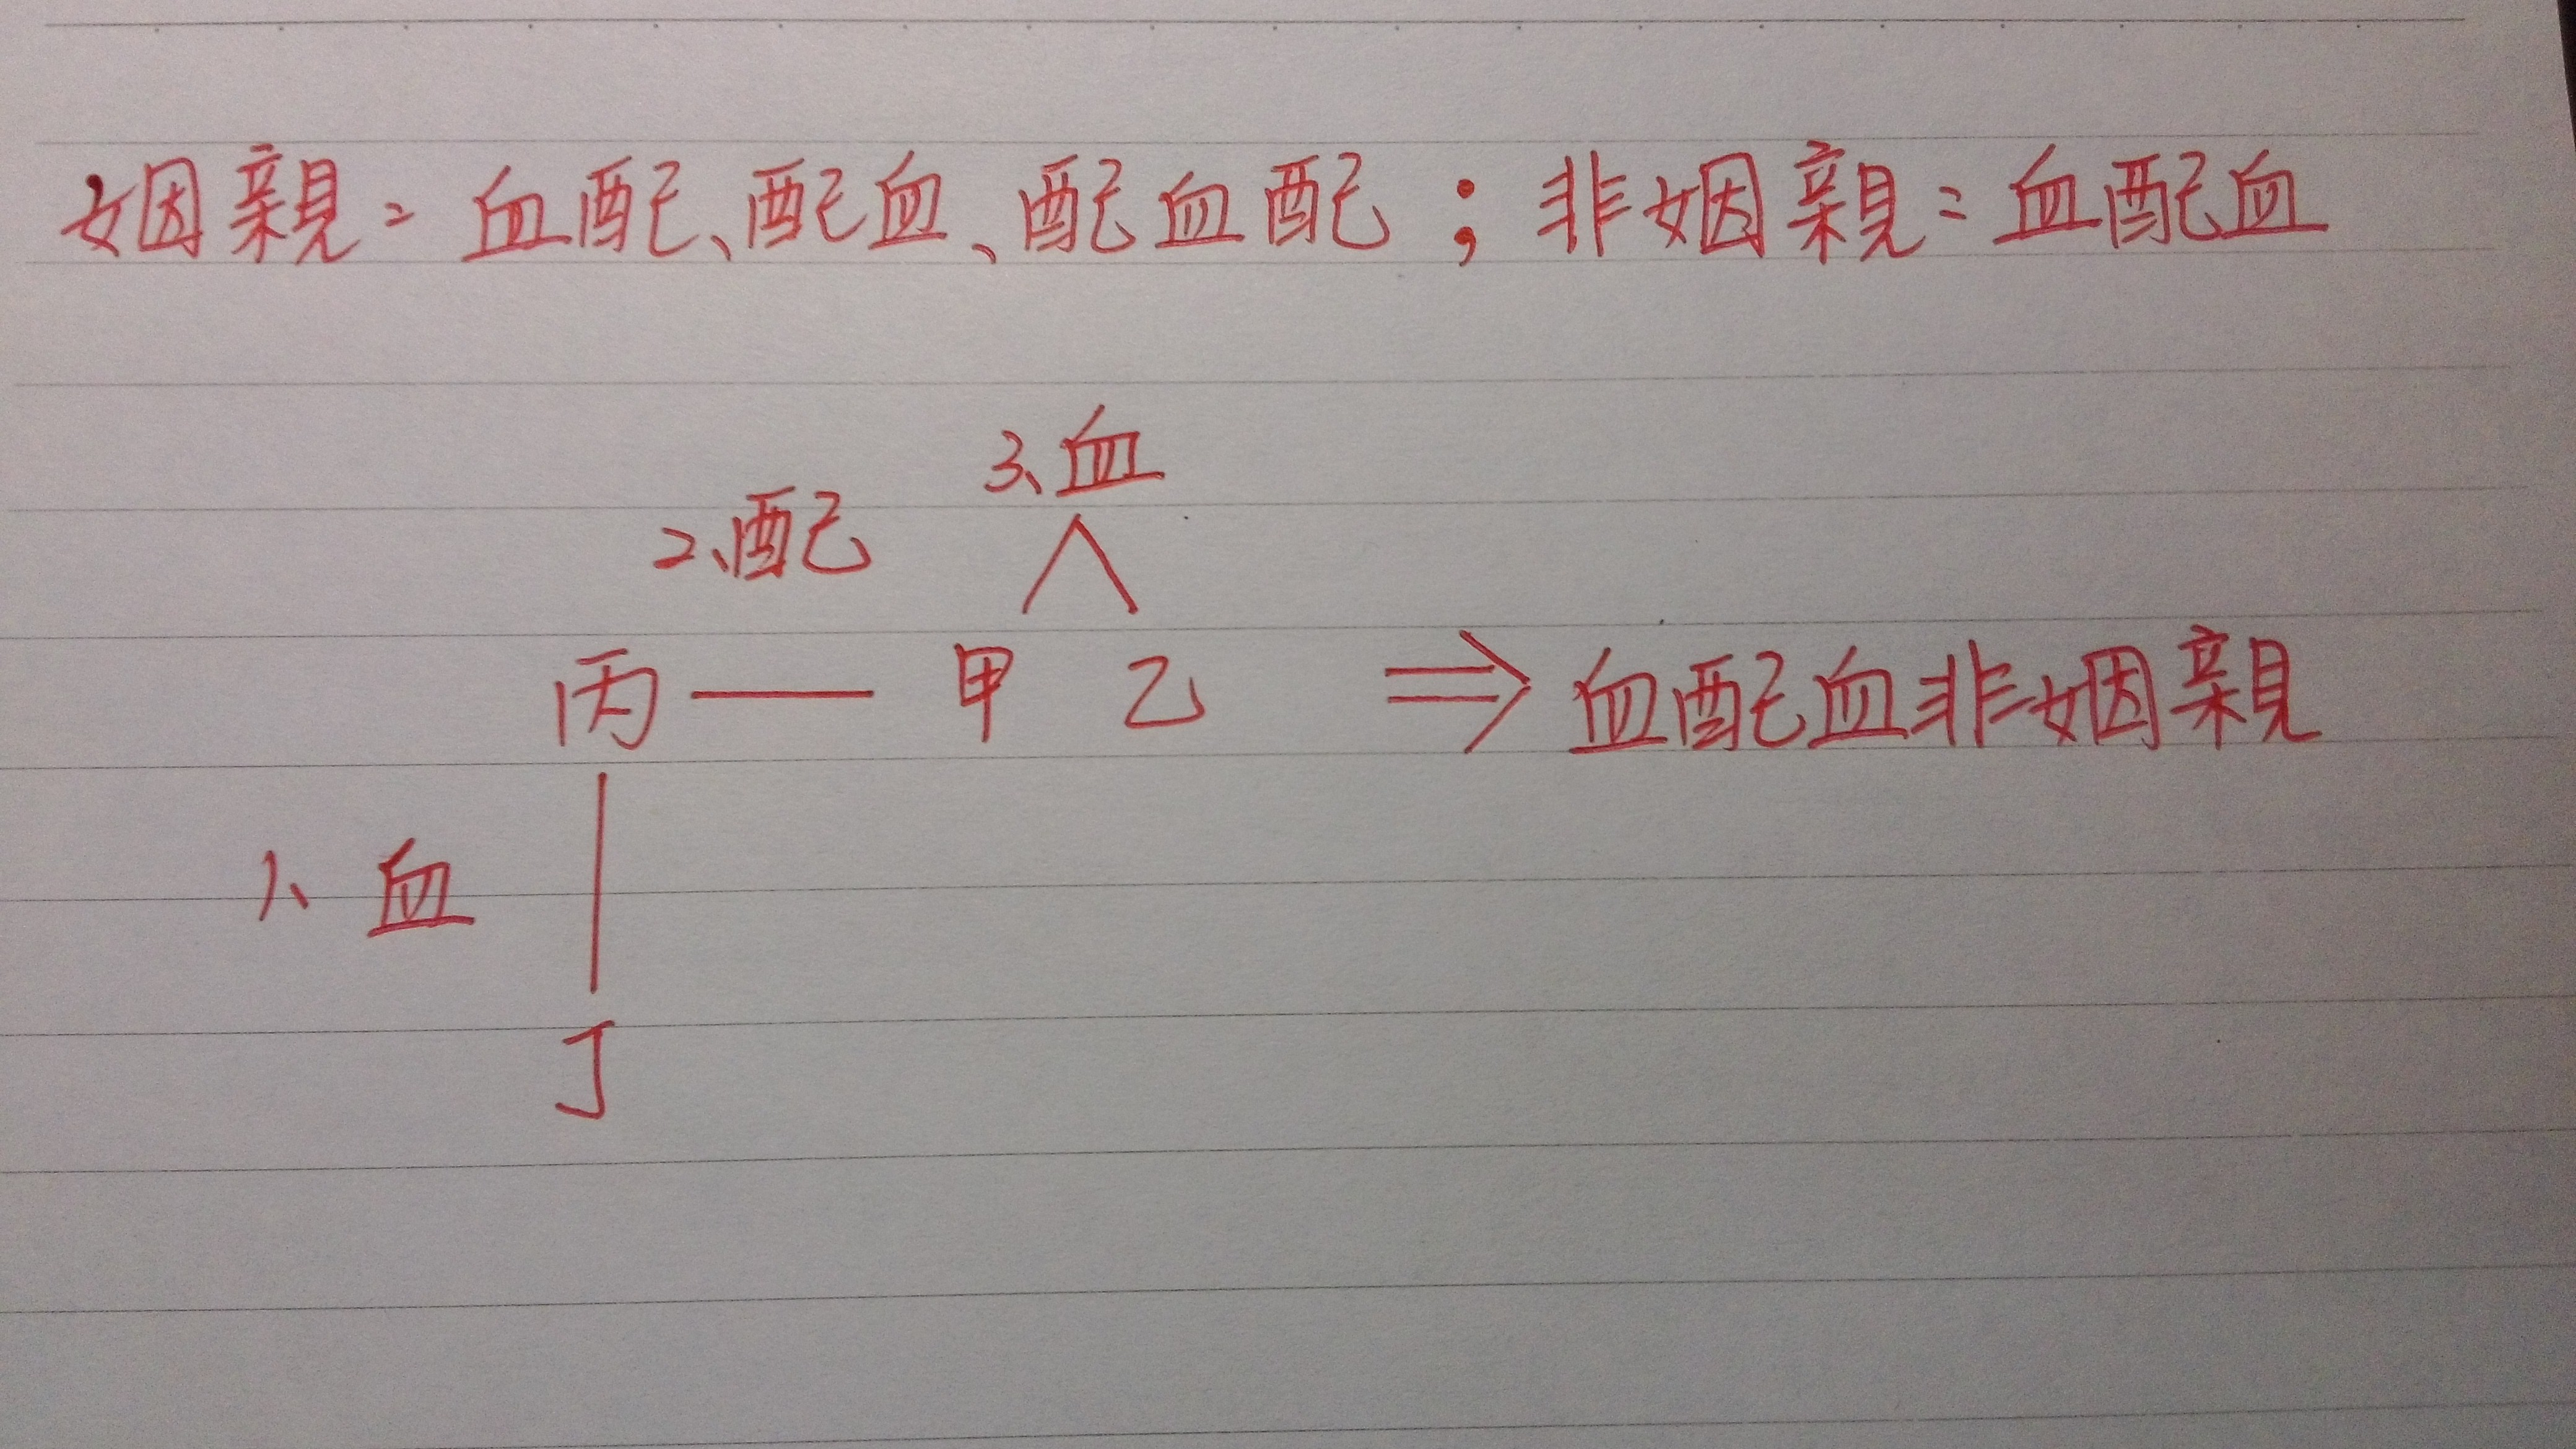 姻親=血配、配血、配血配；非姻親=血配血
3、血
2、配
丙—甲 乙 ⇒血配血非姻親
1、血
丁